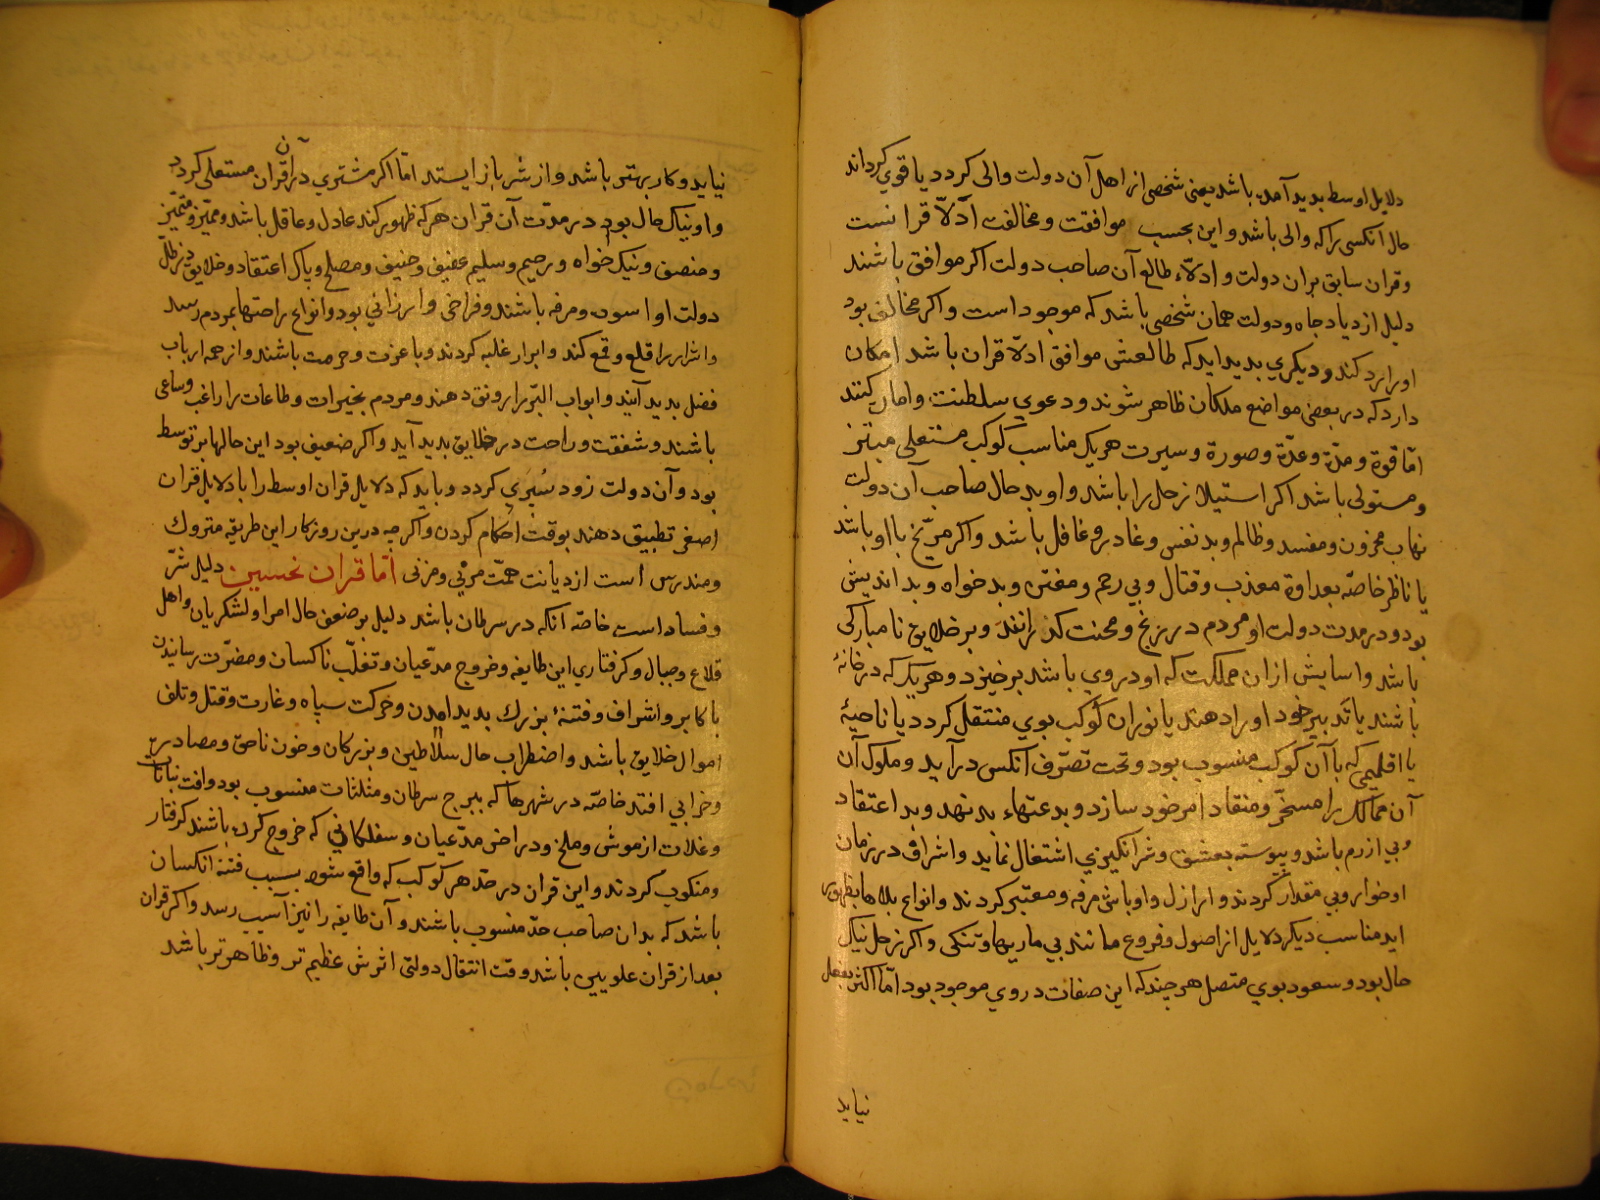 دلایل اوسط بدید آمده باشد یعنی شخصی از اهل آن دولت والی کردد یا قوی کرداند
حال انکسی را که والی باشد و این بحسب موافقت و مخالفت ادلّاّ قرانست
و قران سابق بران دولت و ادلّاء طالع آن صاحب دولت اکر موافق باشند
دلیل ازدیاد جاه و دولت همان شخصی باشد که موجود است و اکر مخالف بود
او را رد کند و دیکری بدید اید که طالعش موافق ادلّا قران باشد امکان
دارد که در بعضی مواضع ملکان ظاهر شوند و دعوی سلطنت و امارت کنند
امّا قوة و مدّة و عدّة و صورة و سیرت هر یک مناسب کوکب مستعلی مبتز
و مستولی باشد اکر استیلا زحل را باشد و او بد حال صاحب آن دولت
نهاب محزون و مفسد و ظالم و بد نفس و غادر و غافل باشد و اکر مرّیخ با او باشد
یا ناظر خاصّه بعداوة معذب و قتال و بی رحم و مفتن و بدخواه و بد اندیش
بود و در مدت دولت او مردم در رنج و محنت کذرانند و بر خلایق نامبارکی
باشد و اسایش ازان مملکت که او در وی باشد برخیزد و هر یک که در خانهٔ
باشند یا تدبیر خود او را دهند یا نوران کوکب بوی منتقل کردد یا ناحیهٔ
یا اقلیمی که با آن کوکب منسوب بود و تحت تصرّف انکس در آید و ملوک آن
آن ممالک را مسخّر و منقاد امر خود سازد و بدعتهاء بد نهد و بد اعتقاد
و بی ازرم باشد و پیوسته بعشق و شر انکیزی اشتغال نماید و اشراف در زمان
او خوار و بی مقدار کردند و ارازل و اوباش مرفه و معتبر کردند و انواع بلاها بظهور
اید مناسب دیکر دلایل از اصول و فروع مانند بی ماریها و تنکی و اکر زحل نیک
حال بود و سعود بوی متصل هر چند که این صفات در وی موجود بود امّا اکثر بفعل
نیاید
نیاید و کار بهتر باشد و از شر باز ایستد امّا اکر مشتری در آن قران مستعلی کردد
و او نیک حال بود در مدّت آن قران هر که ظهور کند عادل و عاقل باشد و ممیّز و متمیّز
و منصف و نیک خواه و رحیم و سلیم عفیف و حنیف و مصلح و پاک اعتقاد و خلایق در ظلّ
دولت او اسوده و مرفه باشند و فراخی و ارزانی بود و انواع راحتها بمردم رسد
و اشرار را قلع و قمع کند و ابرار غلبه کردند و با عزت و حرمت باشند و از همه ارباب
فضل بدید آیند و ابواب البرّ را رونق دهند و مردم بخیرات و طاعات راغب و ساعی
باشند و شفقت و راحت در خلایق بدید آید و اکر ضعیف بود این حالها بر توسط
بود و آن دولت زود سُبَری کردد و باید که دلایل قران اوسط را با دلایل قران
اصغر تطبیق دهند بوقت احکام کردن و اکر چه درین روزکار این طریقه متروک
و مندرس است از دیانت همّت مرقی و مزنی امّا قران نحسین دلیل شرّ
و فساد است خاصّه انکه در سرطان باشد دلیل بر ضعف حال امرا و لشکریان و اهل
قلاع و جبال و کرفتاری این طایفه و خروج مدّعیان و تغلّب ناکسان و مضرّت رسانیدن
باکابر و اشراف و فتنهٔ بزرک بدید امدن و حرکت سپاه و غارت و قتل و تلف
اموال خلایق باشد و اضطراب حال سلاطین و بزرکان و خون ناحق و مصادره
و خرابی افتد خاصّه در شهرها که ببرج سرطان و مثلثات منسوب بود و افت نباتات
و غلات از موش و ملخ و در اخر مدّعیان و سفلکانی که خروج کرده باشند کرفتار
و منکوب کردند و این قران در حدّ هر کوکب که واقع شود بسبب فتنه انکسان
باشد که بدان صاحب حدّ منسوب باشند و آن طایفه را نیز آسیب رسد و اکر قران
بعد از قران علویین باشد وقت انتقال دولتی اثرش عظیم تر و ظاهرتر باشد